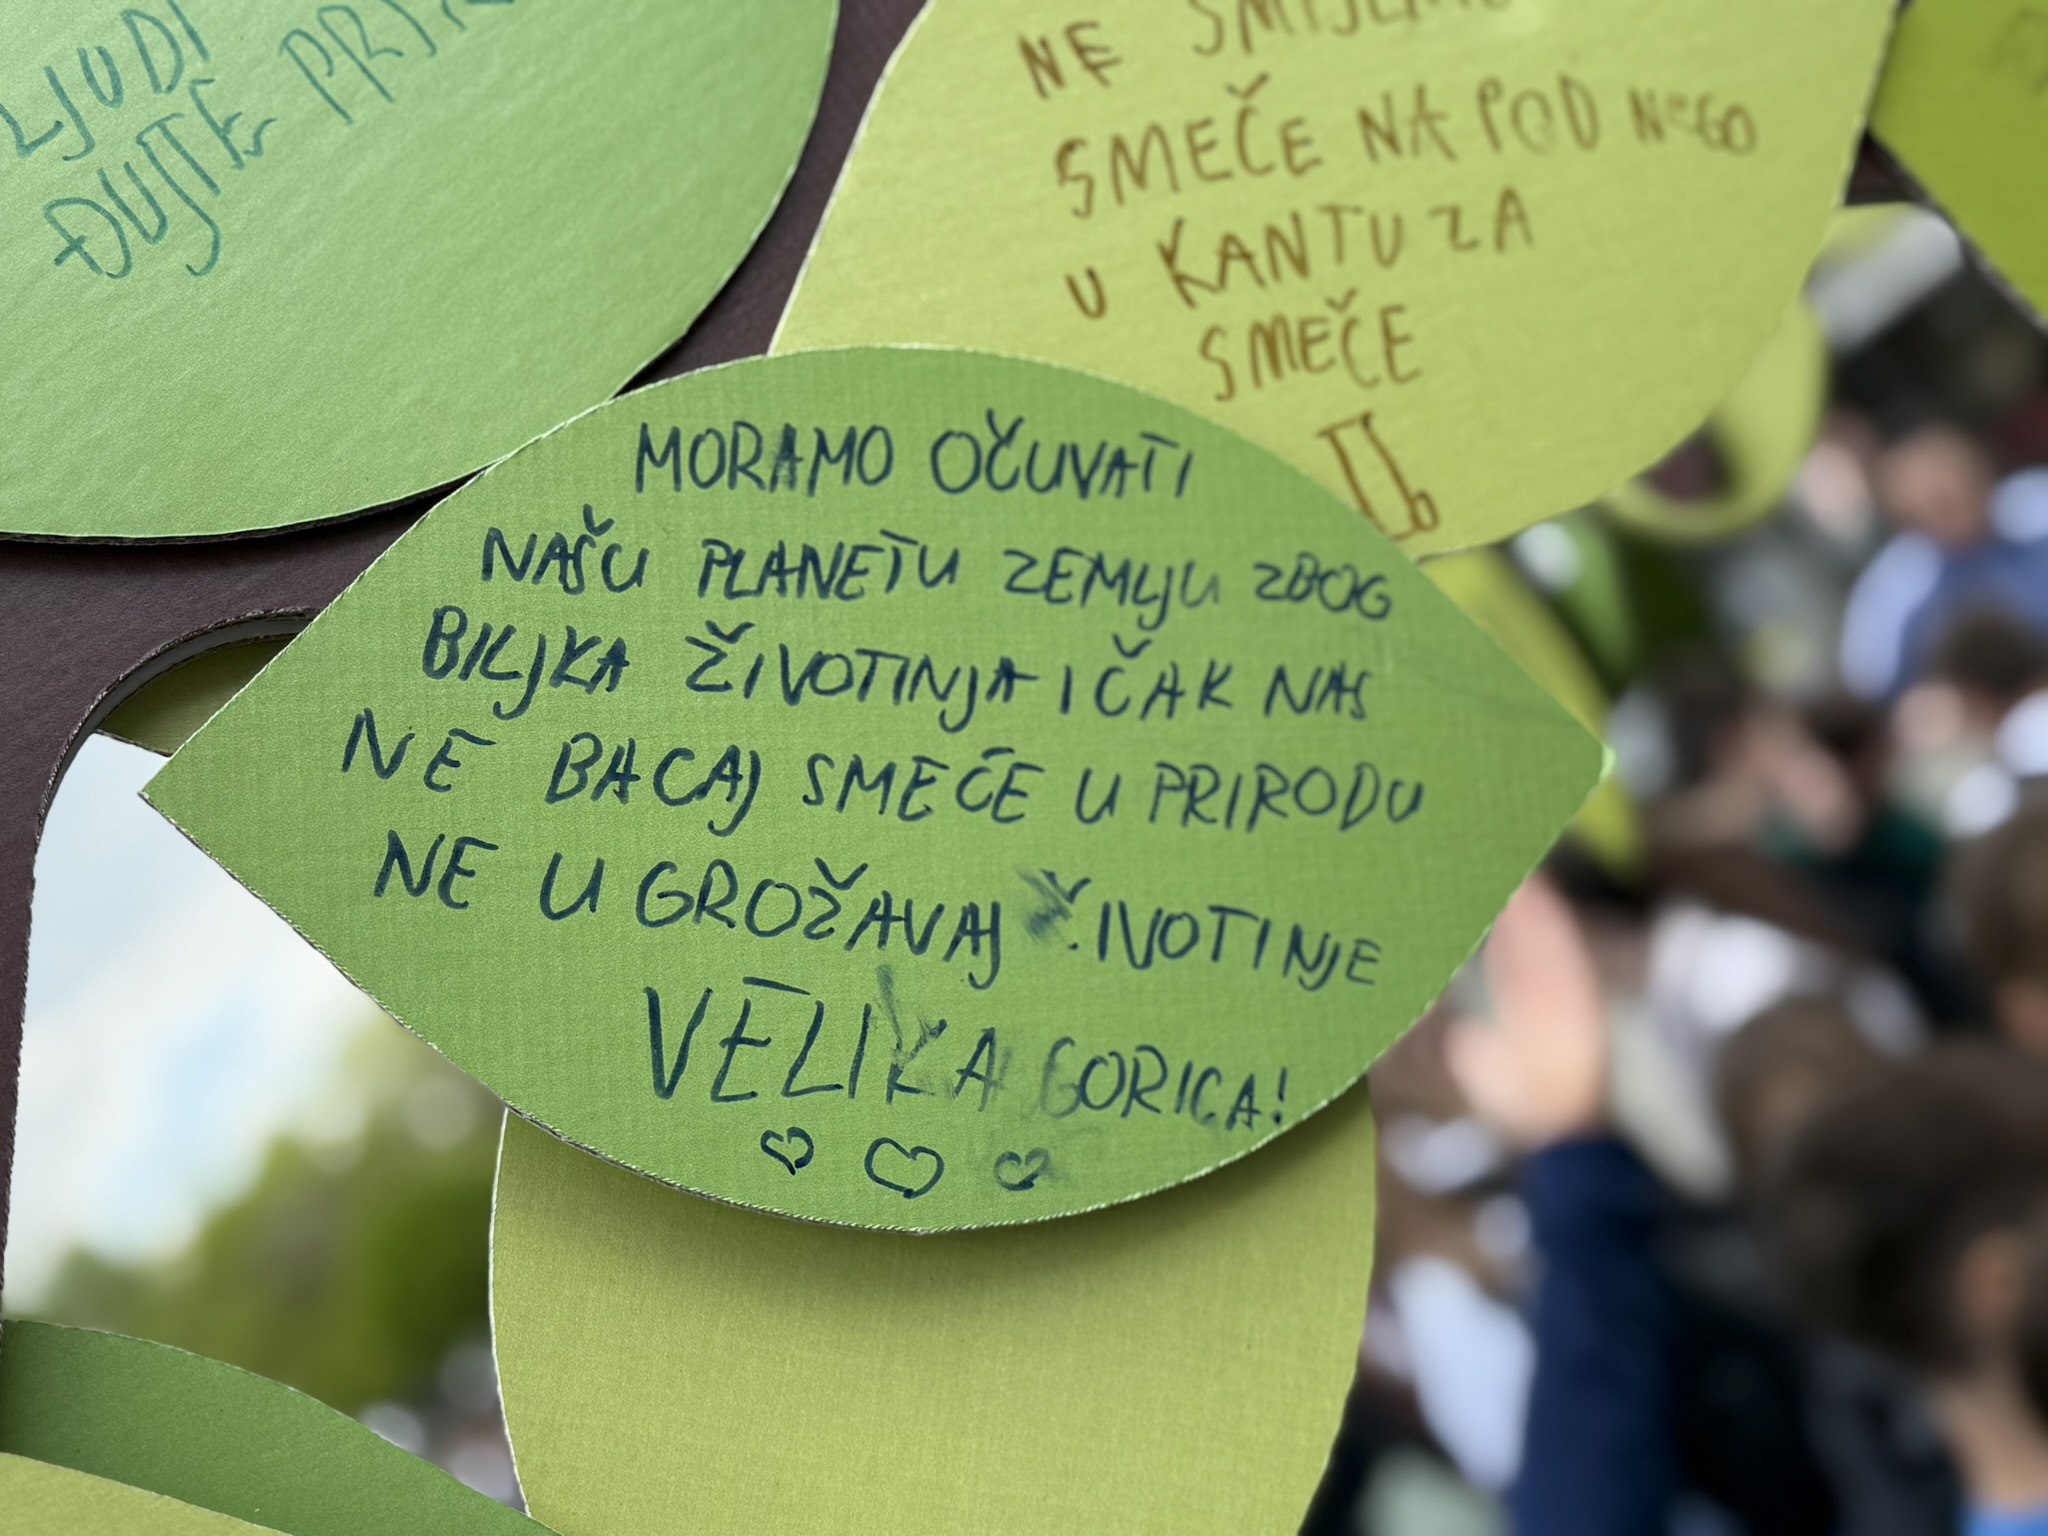 LJUDI
ĐUJTE
NE SMIJEMO
SMEČE NA POD NEGO
U KANTU ZA
SMEČE
MORAMO OČUVATI
NAŠU PLANETU ZEMLJU ZBOG
BILJKA ŽIVOTINJA I ČAK NAS
NE BACAJ SMEČE U PRIRODU
NE UGROŽAVAJ ŽIVOTINJE
VELIKA GORICA!